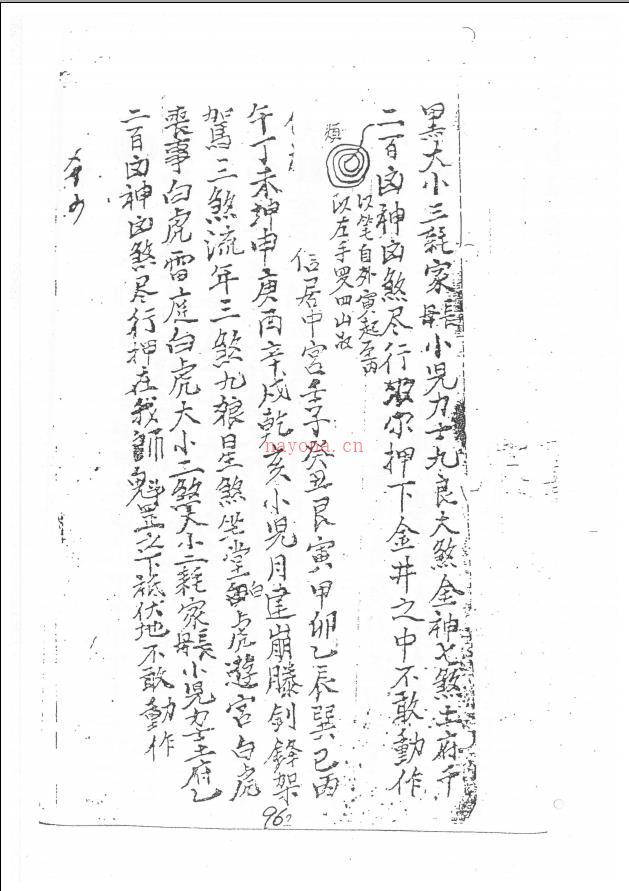 黑大小三耗家長小児力士九良大煞金神七煞土府千
二百凶神凶煞尽行押下金井之中不敢動作
以筆自外寅起至丙
以左手罗四山
居中宮壬子癸丑艮寅甲卯乙辰巽巳丙
午丁未坤申庚酉辛戌乾亥小児月建崩騰剑鋒架
駕三煞流年三煞九娘星煞坐堂白虎遊宮白虎
喪事白虎雷庭白虎大小二煞大小二耗家長小児力士土府
二百凶神凶煞尽行押在我師魁罡之下祗伏地不敢動作
nayona.cn
96